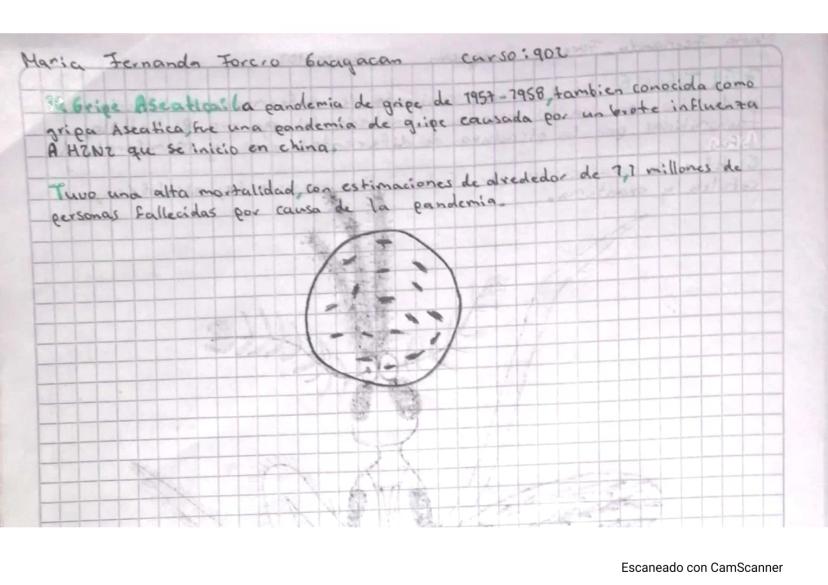 Maria Fernanda Forero Guagacan curso: 902
Gripe Aseatica: La pandemia de gripe de 1957-1958, tambien conocida como
gripa Aseatica, fue una pandemia de gripe causada por un brote influenza
A H2N2 que se inicio en china.
Tuvo una alta mortalidad, con estimaciones de alrededor de 1,1 millones de
personas fallecidas por causa de la pandemia.
Escaneado con CamScanner